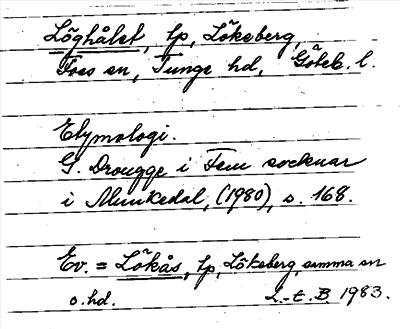 Löghålet, lp, Lökeberg,
Foss sn, Tunge hd, Göteb. l.
Etymologi.
G. Drougge i Fem socknar
i Munkedal, (1980), s. 168.
Ev. = Lökås, lp, Lökeberg, samma sn
o. hd. L.-E. B. 1983.